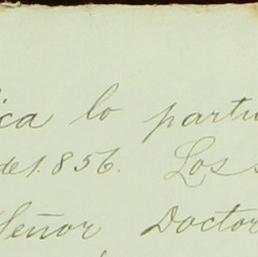 ica lo partic
de 1.856. Los s
Señor Doctor